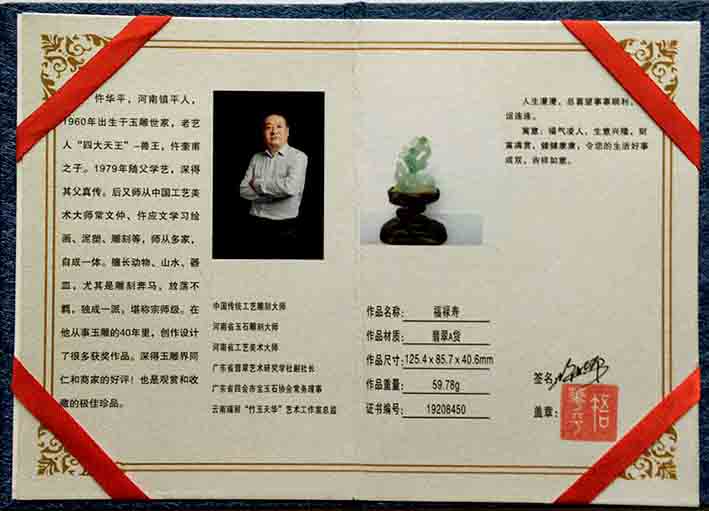 忤华平，河南镇平人，
1960年出生于玉雕世家，老艺
人“四大天王”–兽王，仵奎甫
之子。1979年随父学艺，深得
其父真传。后又师从中国工艺美
术大师常文仲、仵应文学习绘
画、泥塑、雕刻等，师从多家，
自成一体。擅长动物、山水、器
皿，尤其是雕刻奔马，放荡不
羁，独成一派，堪称宗师级。在
他从事玉雕的40年里，创作设计
了很多获奖作品。深得玉雕界同
仁和商家的好评！也是观赏和收
藏的极佳珍品。
中国传统工艺雕刻大师
河南省玉石雕刻大师
河南省工艺美术大师
广东省翡翠艺术研究学社副社长
广东省四会市宝玉石协会常务理事
云南瑞丽“竹玉天华”艺术工作室总监
人生漫漫，总喜望事事顺利，
运连连。
寓意：福气凌人，生意兴隆，财
富满贯，健健康康，令您的生活好事
成双，吉祥如意。
作品名称：福禄寿
作品材质：翡翠A货
作品尺寸：125.4x85.7x40.6mm
作品重量：59.78g
证书编号：19208450
签名：
盖章：